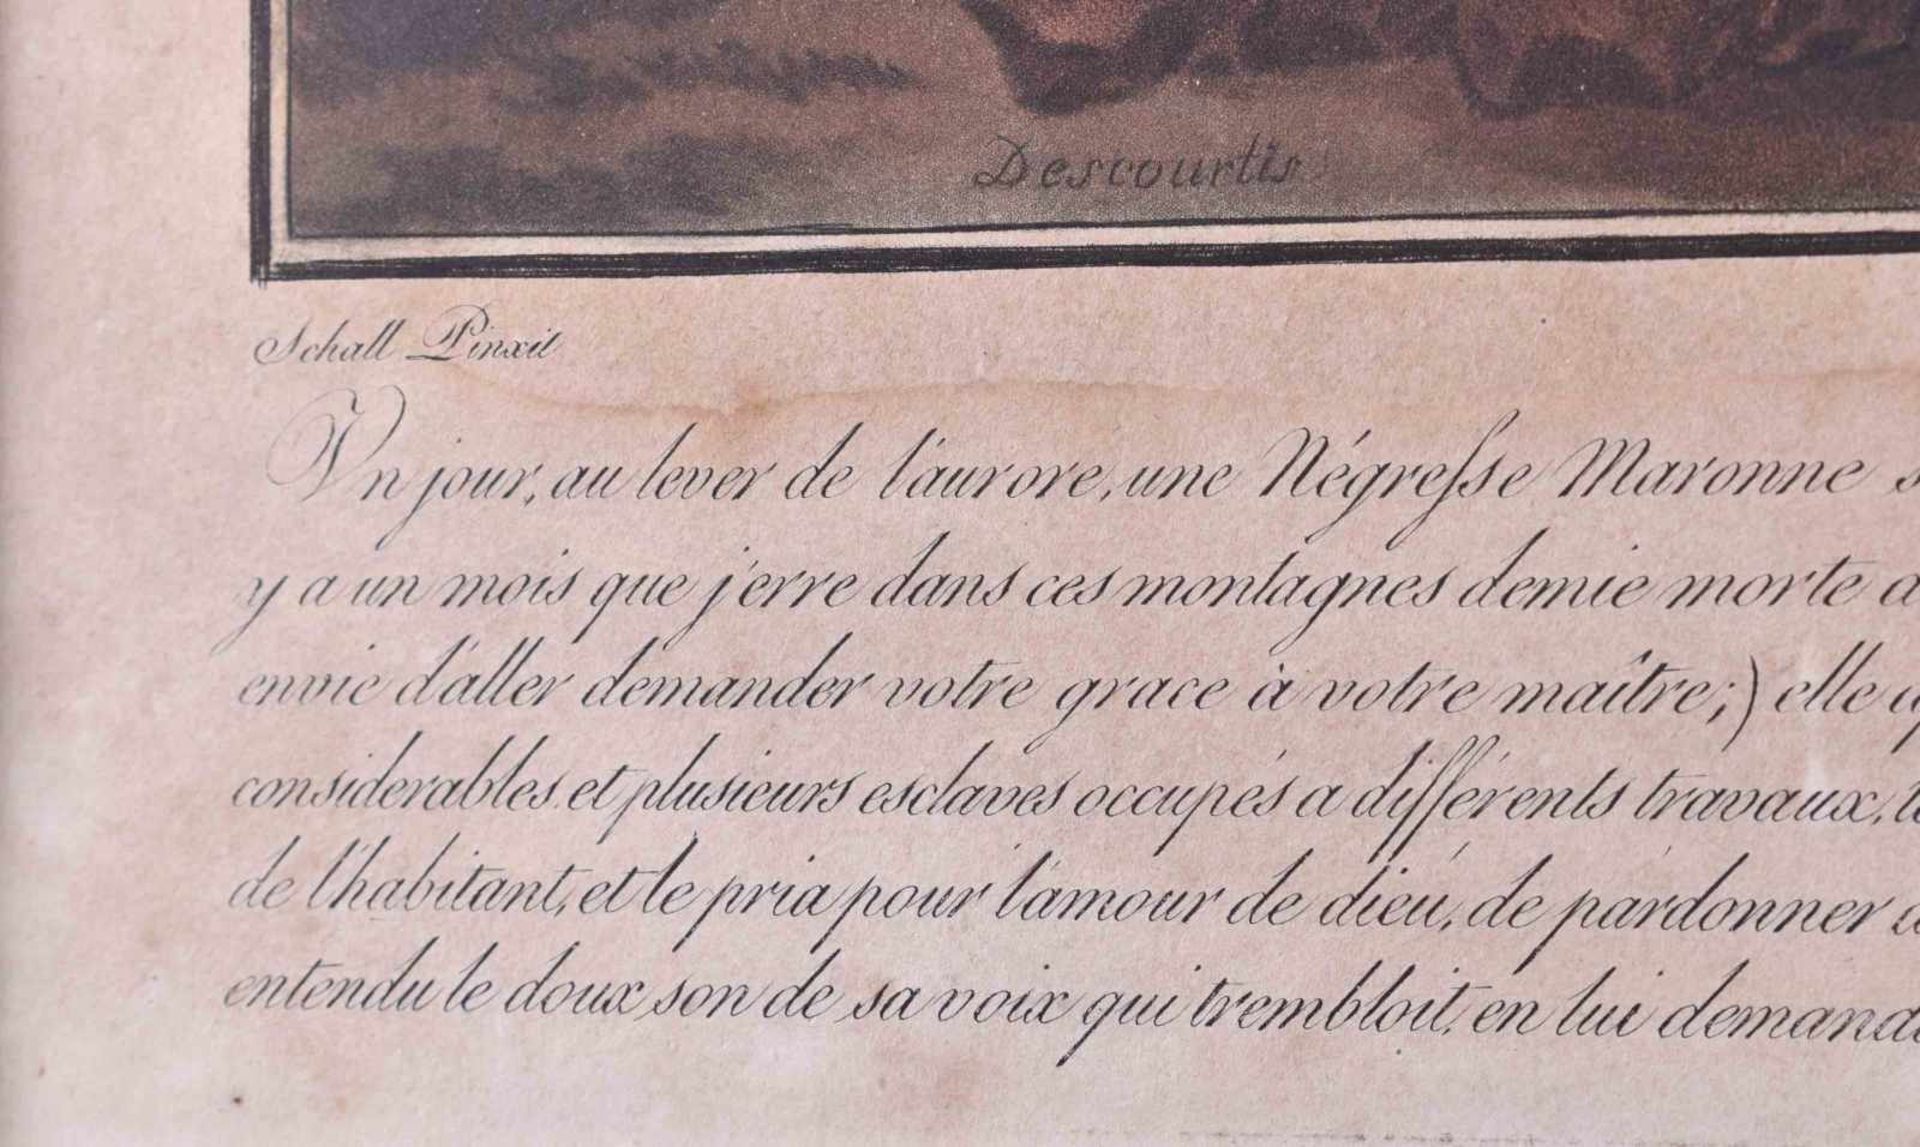 Descourtis
Schall Pinxit
Vn jour, au lever de l'aurore, une Négreſse Maronne s
y a un mois que j'erre dans ces montagnes demie morte d
envie d'aller demander votre grace à votre maître;) elle
considerables, et plusieurs esclaves occupés a différents travaux,
de l'habitant, et le pria pour l'amour de dieu, de pardonner
entendu le doux son de sa voix qui trembloit, en lui demand